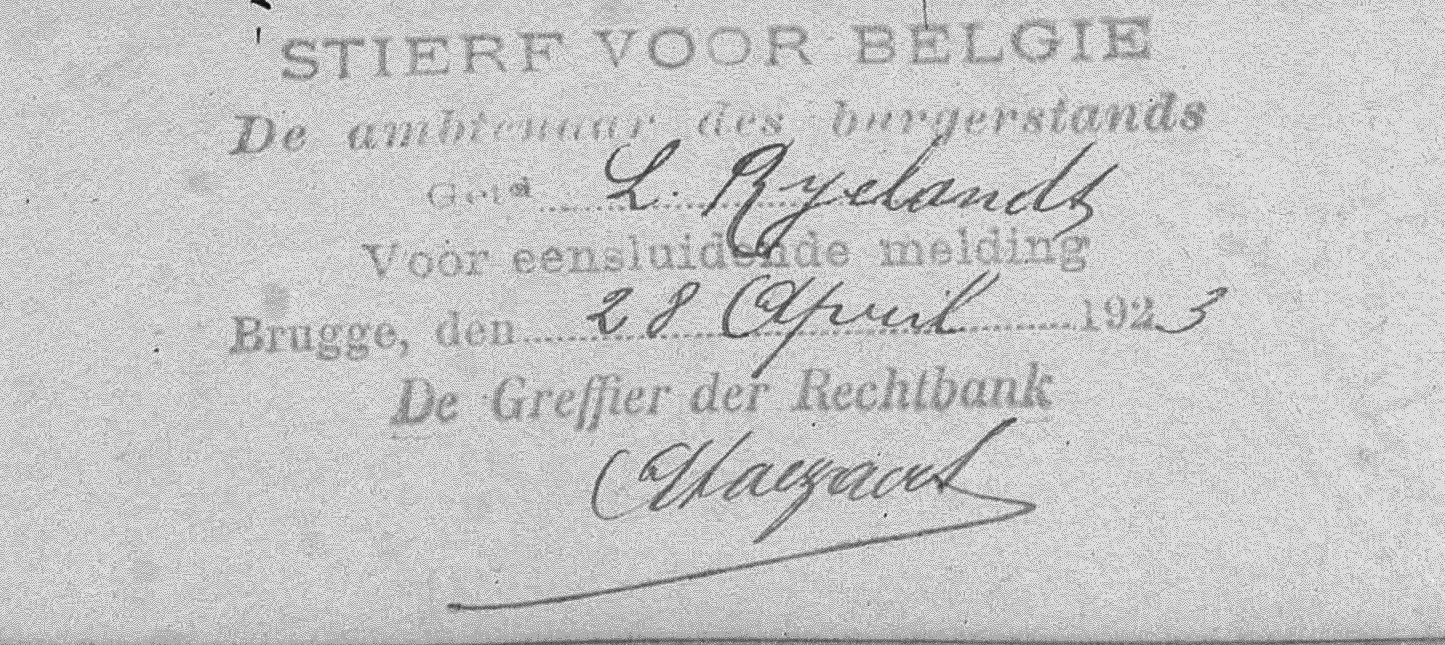 STIERF VOOR BELGIE
De ambtenaar des burgerstands
Get^d L. Ryelandt
Voor eensluidende melding
Brugge, den 28 April 1923
De Greffier der Rechtbank